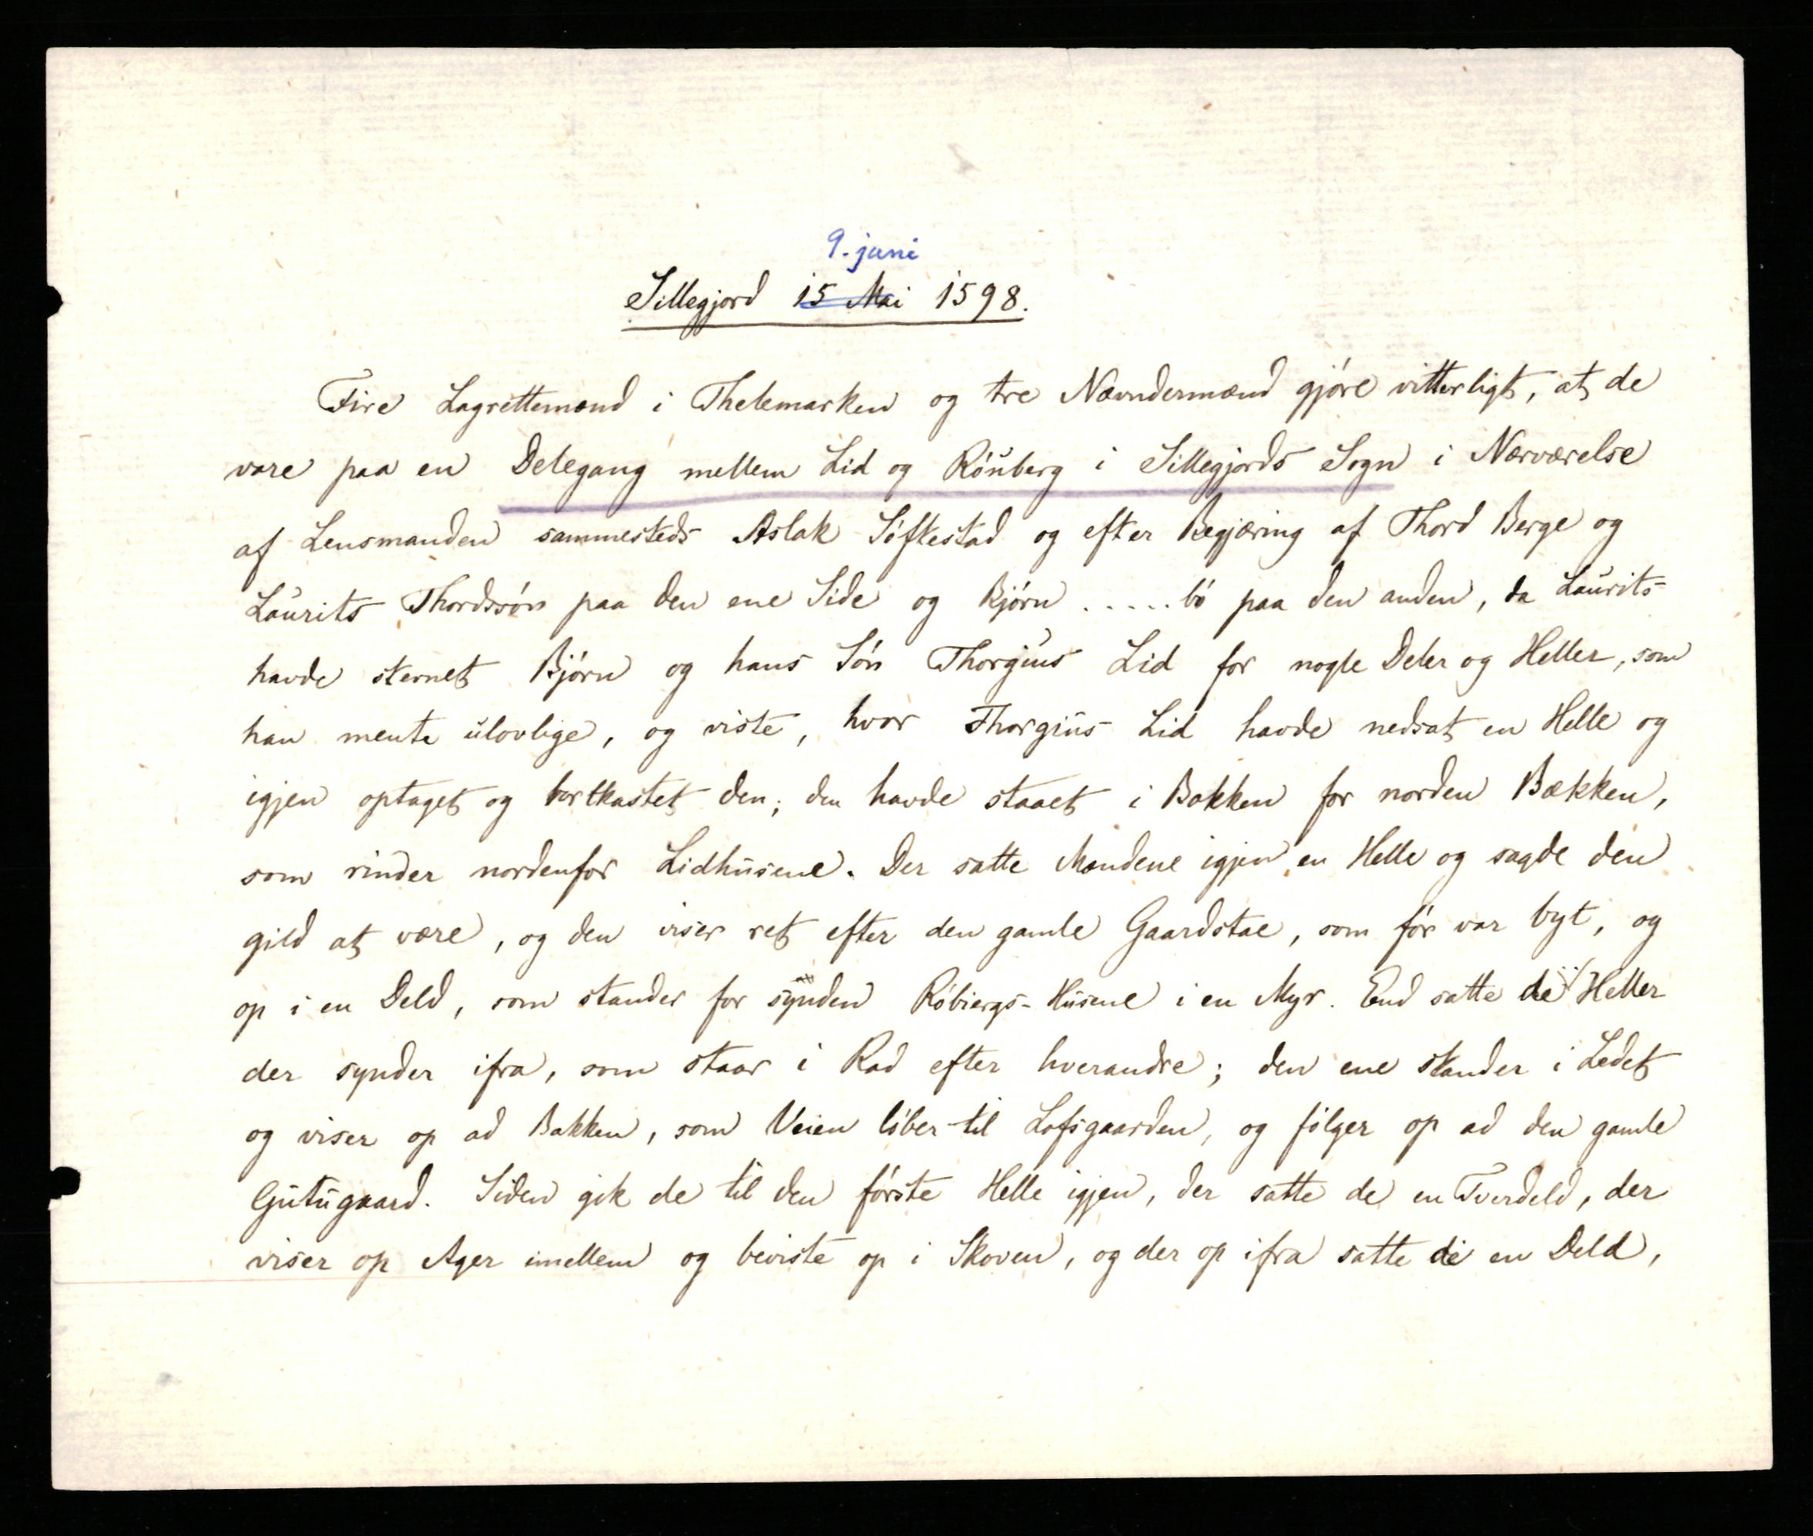 9. juni
Sillegjord 15 Mai 1598.
Fire Lagrettemænd i Thelemarken og tre Nævndermænd gjøre vitterligt, at de
vare paa en Delegang mellem Lid og Røuberg i Sillegjords Sogn i Nærværelse
af Lensmanden sammesteds Aslak Søftestad og efter Begjæring af Thord Berge og
Laurits Thordssøn paa den ene Side og Bjørn ..... bø paa den anden, da Laurits
havde stevnet Bjørn og hans Søn Thorgius Lid for nogle Deler og Heller, som
han mente ulovlige, og viste, hvor Thorgius Lid havde nedsat en Helle og
igjen optaget og bortkastet den; den havde staaet i Bakken for norden Bækken,
som rinder nordenfor Lidhusene. Der satte Mændene igjen en Helle og sagde den
gild at være, og den viser ret efter den gamle Gaardstae, som før var byt, og
op i en Deld, som stander for synden Røbiergs-Husene i en Myr. End satte de Heller
der synder ifra, som staar i Rad efter hverandre; den ene stander i Ledet
og viser op ad Bakken, som Veien løber til Lofsgaarden, og følger op ad den gamle
Gutugaard. Siden gik de til den første Helle igjen, der satte de en Tverdeld, der
viser op Ager imellem og beviste op i Skoven, og der op ifra satte de en Deld,